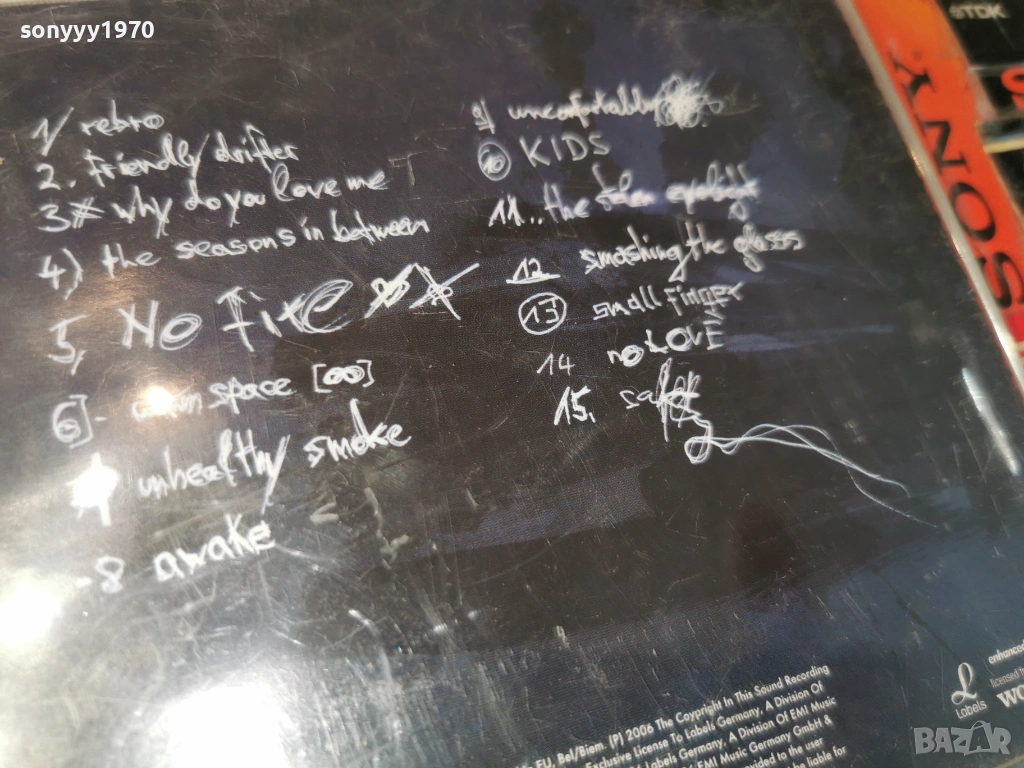 sonyyy1970
1/ retro
2. friendly drifter
3 why do you love me
4) the seasons in between
5, No Fire
6]- space [∞]
unhealthy smoke
-8 awake
9/ uncomfortably
10 KIDS
11... the
12 smashing the glasses
13 small finger
14 no LOVE
15.
eTDK
SONY
EU, Bel/Biem. (P) 2006 The Copyright In This Sound Recording
Exclusive License To Labels Germany, A Division Of
Labels Germany, A Division Of EMI Music
EMI Music Germany GmbH &
provided to the user
be liable for
Labels
enhanced
licensed
BAZAR